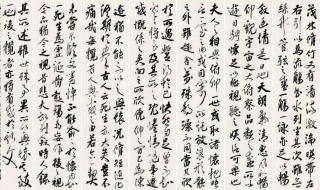 茂林修竹又有清流激湍映帶左
右引以為流觴曲水列坐其次雖無
絲竹管弦之盛一觴一詠亦足以暢
敘幽情是日也天朗氣清惠風和暢
仰觀宇宙之大俯察品類之盛所以
遊目騁懷足以極視聽之娛信可樂也
夫人之相與俯仰一世或取諸懷抱悟
言一室之內或因寄所託放浪形骸
之外雖趣舍萬殊靜躁不同當其欣
於所遇暫得於己快然自足不知老之
將至及其所之既倦情隨事遷感
慨係之矣向之所欣俛仰之間已為陳
迹猶不能不以之興懷況修短隨化
終期於盡古人云死生亦大矣豈不
痛哉每覽昔人興感之由若合一契
未嘗不臨文嗟悼不能喻之於懷固知
一死生為虛誕齊彭殤為妄作後之視
今亦猶今之視昔悲夫故列敘時人錄
其所述雖世殊事異所以興懷其致一
也後之覽者亦將有感於斯文